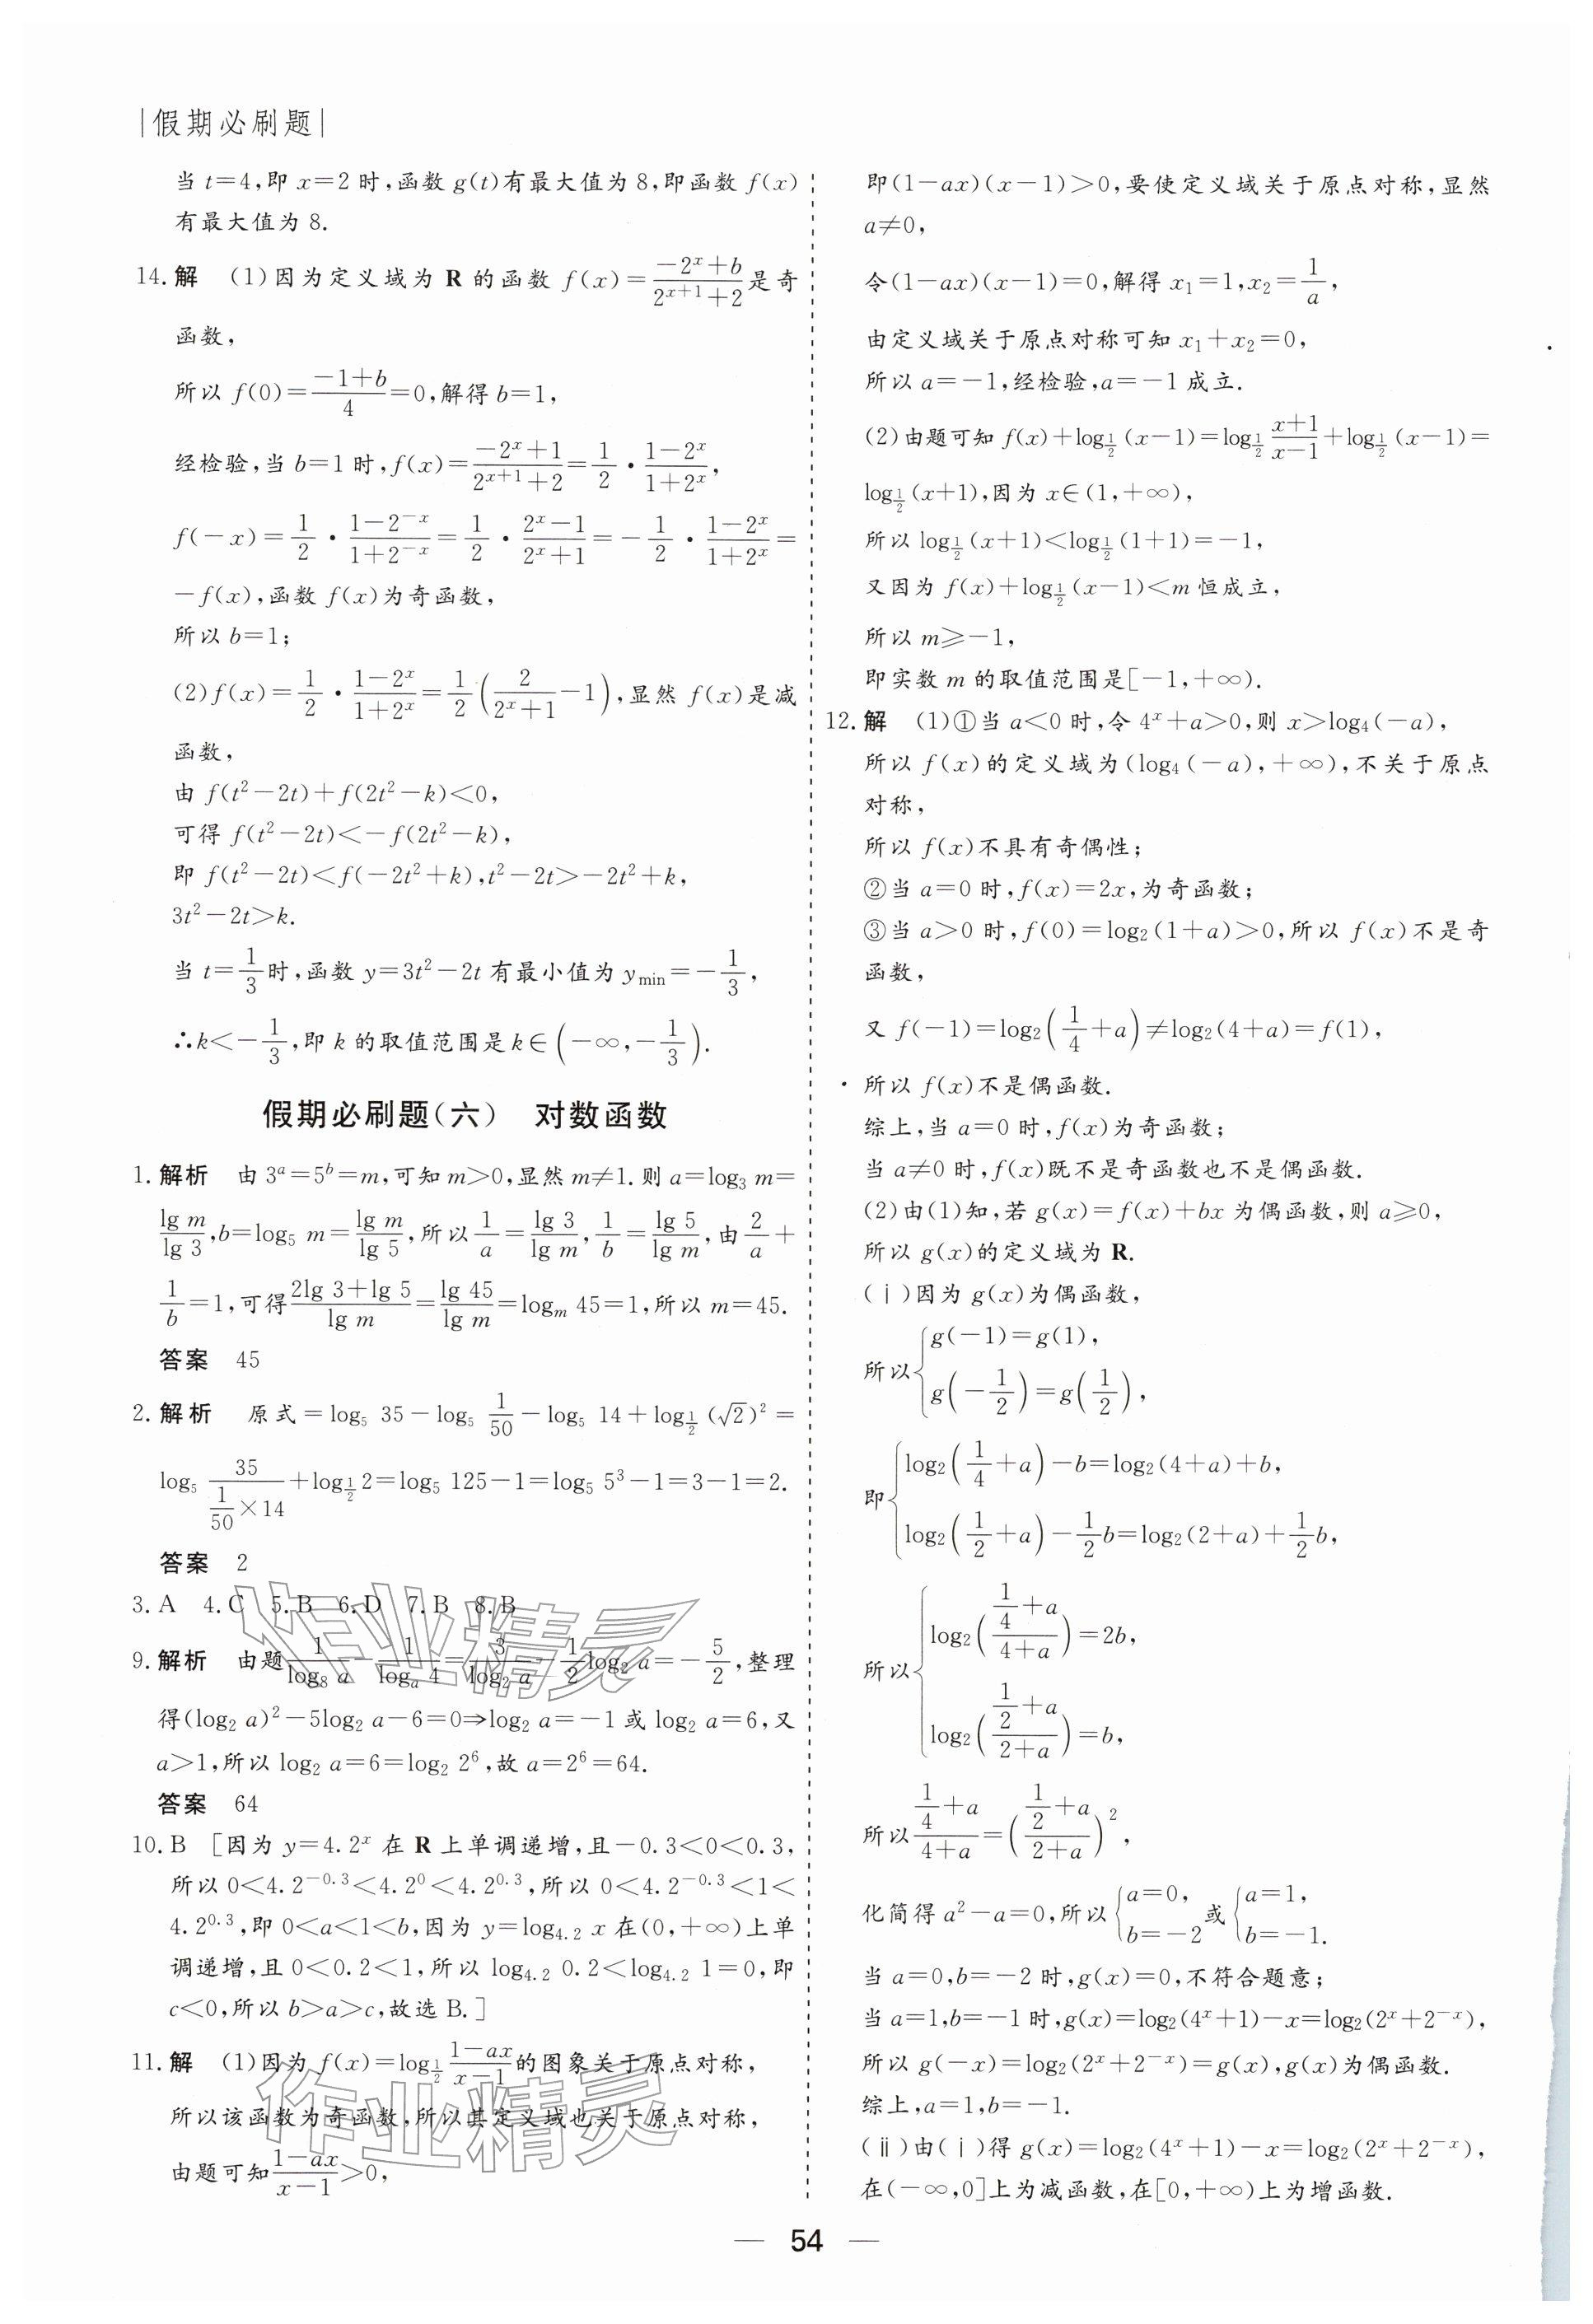 |假期必刷题|
当 t=4,即 x=2 时,函数 g(t)有最大值为 8,即函数 f(x)
有最大值为 8.
14. 解 (1)因为定义域为 R 的函数 f(x)=(-2^x+b)/(2^(x+1)+2)是奇
函数,
所以 f(0)=(-1+b)/4=0,解得 b=1,
经检验,当 b=1 时,f(x)=(-2^x+1)/(2^(x+1)+2)=1/2·(1-2^x)/(1+2^x),
f(-x)=1/2·(1-2^(-x))/(1+2^(-x))=1/2·(2^x-1)/(2^x+1)=-1/2·(1-2^x)/(1+2^x)=
-f(x),函数 f(x)为奇函数,
所以 b=1;
(2)f(x)=1/2·(1-2^x)/(1+2^x)=1/2(2/(2^x+1)-1),显然 f(x)是减
函数,
由 f(t²-2t)+f(2t²-k)<0,
可得 f(t²-2t)<-f(2t²-k),
即 f(t²-2t)<f(-2t²+k),t²-2t>-2t²+k,
3t²-2t>k.
当 t=1/3时,函数 y=3t²-2t 有最小值为 y_min=-1/3,
∴k<-1/3,即 k 的取值范围是 k∈(-∞,-1/3).
假期必刷题(六) 对数函数
1. 解析 由 3^a=5^b=m,可知 m>0,显然 m≠1. 则 a=log₃ m=
lg m/lg 3,b=log₅ m=lg m/lg 5,所以 1/a=lg 3/lg m,1/b=lg 5/lg m,由 2/a+
1/b=1,可得(2lg 3+lg 5)/lg m=lg 45/lg m=log_m 45=1,所以 m=45.
答案 45
2. 解析 原式=log₅ 35-log₅ 1/50-log₅ 14+log_(1/2)(√2)²=
log₅ 35/(1/50×14)+log_(1/2)2=log₅ 125-1=log₅ 5³-1=3-1=2.
答案 2
3. A 4. C 5. B 6. D 7. B 8. B
9. 解析 由题1/log₈ a-1/log_a 4=3/log₂ a-1/2 log₂ a=-5/2,整理
得(log₂ a)²-5log₂ a-6=0⇒log₂ a=-1 或 log₂ a=6,又
a>1,所以 log₂ a=6=log₂ 2⁶,故 a=2⁶=64.
答案 64
10. B [因为 y=4.2^x 在 R 上单调递增,且-0.3<0<0.3,
所以 0<4.2^(-0.3)<4.2^0<4.2^0.3,所以 0<4.2^(-0.3)<1<
4.2^0.3,即 0<a<1<b,因为 y=log_4.2 x 在(0,+∞)上单
调递增,且 0<0.2<1,所以 log_4.2 0.2<log_4.2 1=0,即
c<0,所以 b>a>c,故选 B.]
11. 解 (1)因为 f(x)=log_(1/2) (1-ax)/(x-1)的图象关于原点对称,
所以该函数为奇函数,所以其定义域也关于原点对称,
由题可知(1-ax)/(x-1)>0,
即(1-ax)(x-1)>0,要使定义域关于原点对称,显然
a≠0,
令(1-ax)(x-1)=0,解得 x₁=1,x₂=1/a,
由定义域关于原点对称可知 x₁+x₂=0,
所以 a=-1,经检验,a=-1 成立.
(2)由题可知 f(x)+log_(1/2)(x-1)=log_(1/2) (x+1)/(x-1)+log_(1/2)(x-1)=
log_(1/2)(x+1),因为 x∈(1,+∞),
所以 log_(1/2)(x+1)<log_(1/2)(1+1)=-1,
又因为 f(x)+log_(1/2)(x-1)<m 恒成立,
所以 m⩾-1,
即实数 m 的取值范围是[-1,+∞).
12. 解 (1)①当 a<0 时,令 4^x+a>0,则 x>log₄(-a),
所以 f(x)的定义域为(log₄(-a),+∞),不关于原点
对称,
所以 f(x)不具有奇偶性;
②当 a=0 时,f(x)=2x,为奇函数;
③当 a>0 时,f(0)=log₂(1+a)>0,所以 f(x)不是奇
函数,
又 f(-1)=log₂(1/4+a)≠log₂(4+a)=f(1),
所以 f(x)不是偶函数.
综上,当 a=0 时,f(x)为奇函数;
当 a≠0 时,f(x)既不是奇函数也不是偶函数.
(2)由(1)知,若 g(x)=f(x)+bx 为偶函数,则 a⩾0,
所以 g(x)的定义域为 R.
(ⅰ)因为 g(x)为偶函数,
所以{g(-1)=g(1),
g(-1/2)=g(1/2),
即{log₂(1/4+a)-b=log₂(4+a)+b,
log₂(1/2+a)-1/2 b=log₂(2+a)+1/2 b,
所以{log₂((1/4+a)/(4+a))=2b,
log₂((1/2+a)/(2+a))=b,
所以(1/4+a)/(4+a)=((1/2+a)/(2+a))²,
化简得 a²-a=0,所以{a=0, b=-2 或{a=1, b=-1.
当 a=0,b=-2 时,g(x)=0,不符合题意;
当 a=1,b=-1 时,g(x)=log₂(4^x+1)-x=log₂(2^x+2^(-x)),
所以 g(-x)=log₂(2^x+2^(-x))=g(x),g(x)为偶函数.
综上,a=1,b=-1.
(ⅱ)由(ⅰ)得 g(x)=log₂(4^x+1)-x=log₂(2^x+2^(-x)),
在(-∞,0]上为减函数,在[0,+∞)上为增函数.
— 54 —
作业精灵
作业精灵